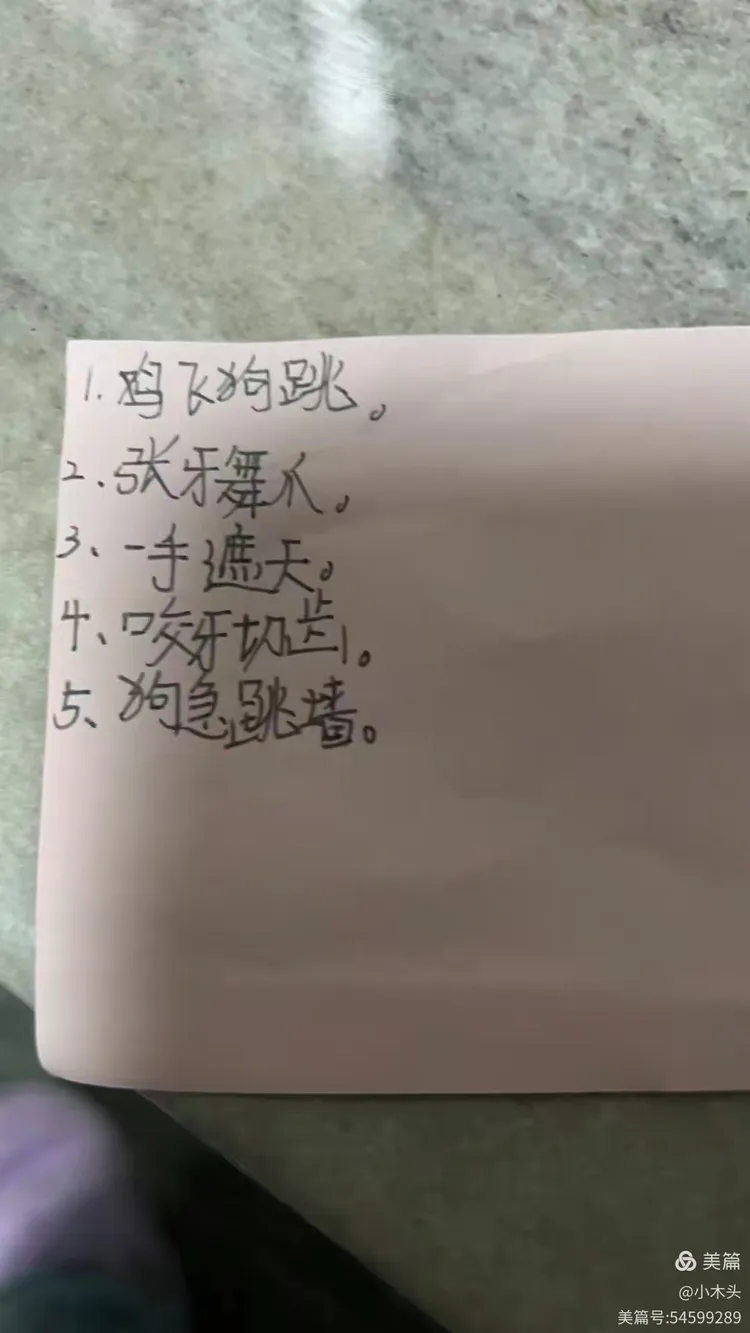 1. 鸡飞狗跳。
2、张牙舞爪。
3、一手遮天。
4、咬牙切齿。
5、狗急跳墙。
美篇
@小木头
美篇号:54599289